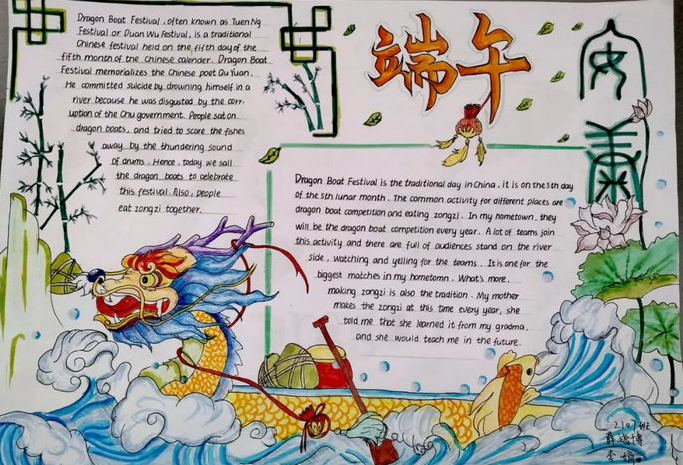 Dragon Boat Festival, often known as Tuen Ng
Festival or Duan Wu Festival, is a traditional
Chinese festival held on the fifth day of the
fifth month of the Chinese calender. Dragon Boat
Festival memorializes the Chinese poet Qu Yuan.
He committed suicide by drowning himself in a
river because he was disgusted by the corr-
uption of the Chu government. People sat on
dragon boats, and tried to scare the fishes
away by the thundering sound
of drums. Hence, today we sail
the dragon boats to celebrate
this festival. Also, people
eat zongzi together.
端午
安
康
Dragon Boat Festival is the traditional day in China, it is on the 5th day
of the 5th lunar month. The common activity for different places are
dragon boat competition and eating zongzi. In my hometown, they
will be the dragon boat competition every year. A lot of teams join
this activity and there are full of audiences stand on the river
side, watching and yelling for the teams. It is one for the
biggest matches in my hometown. What's more,
making zongzi is also the tradition. My mother
makes the zongzi at this time every year, she
told me that she learned it from my gradma,
and she would teach me in the future.